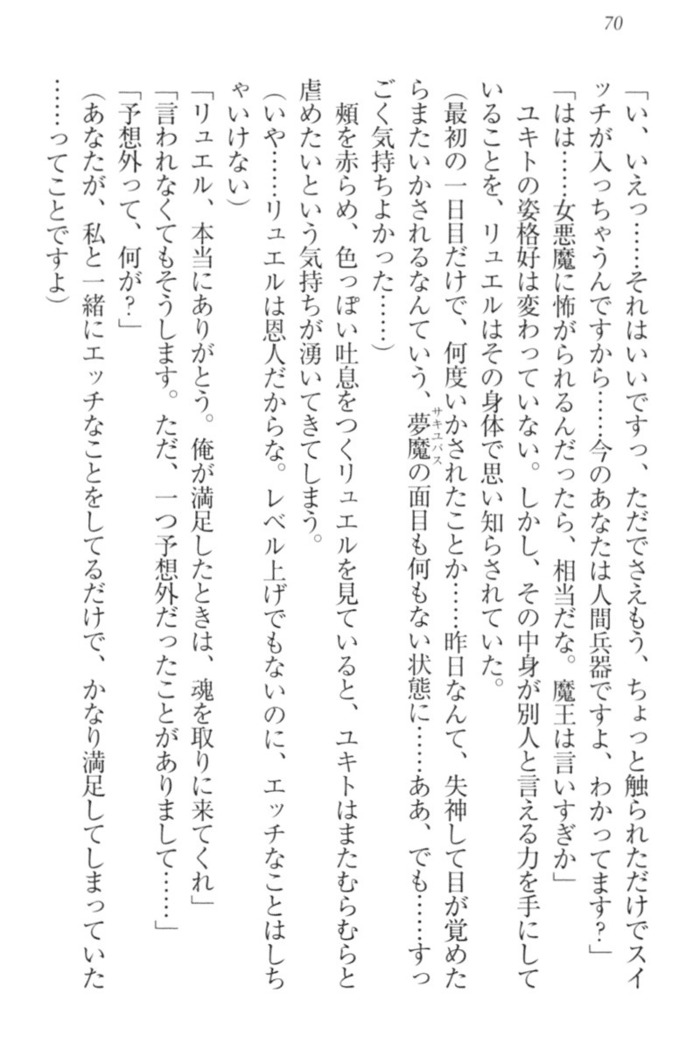 70
「い、いえっ……それはいいですっ、ただでさえもう、ちょっと触られただけでスイ
ッチが入っちゃうんですから……今のあなたは人間兵器ですよ、わかってます？」
「はは……女悪魔に怖がられるんだったら、相当だな。魔王は言いすぎか」
　ユキトの姿格好は変わっていない。しかし、その中身が別人と言える力を手にして
いることを、リュエルはその身体で思い知らされていた。
（最初の一日目だけで、何度いかされたことか……昨日なんて、失神して目が覚めた
らまたいかされるなんていう、夢魔の面目も何もない状態に……ああ、でも……すっ
サキュバス
ごく気持ちよかった……）
　頬を赤らめ、色っぽい吐息をつくリュエルを見ていると、ユキトはまたむらむらと
虐めたいという気持ちが湧いてきてしまう。
（いや……リュエルは恩人だからな。レベル上げでもないのに、エッチなことはしち
ゃいけない）
「リュエル、本当にありがとう。俺が満足したときは、魂を取りに来てくれ」
「言われなくてもそうします。ただ、一つ予想外だったことがありまして……」
「予想外って、何が？」
（あなたが、私と一緒にエッチなことをしてるだけで、かなり満足してしまっていた
……ってことですよ）